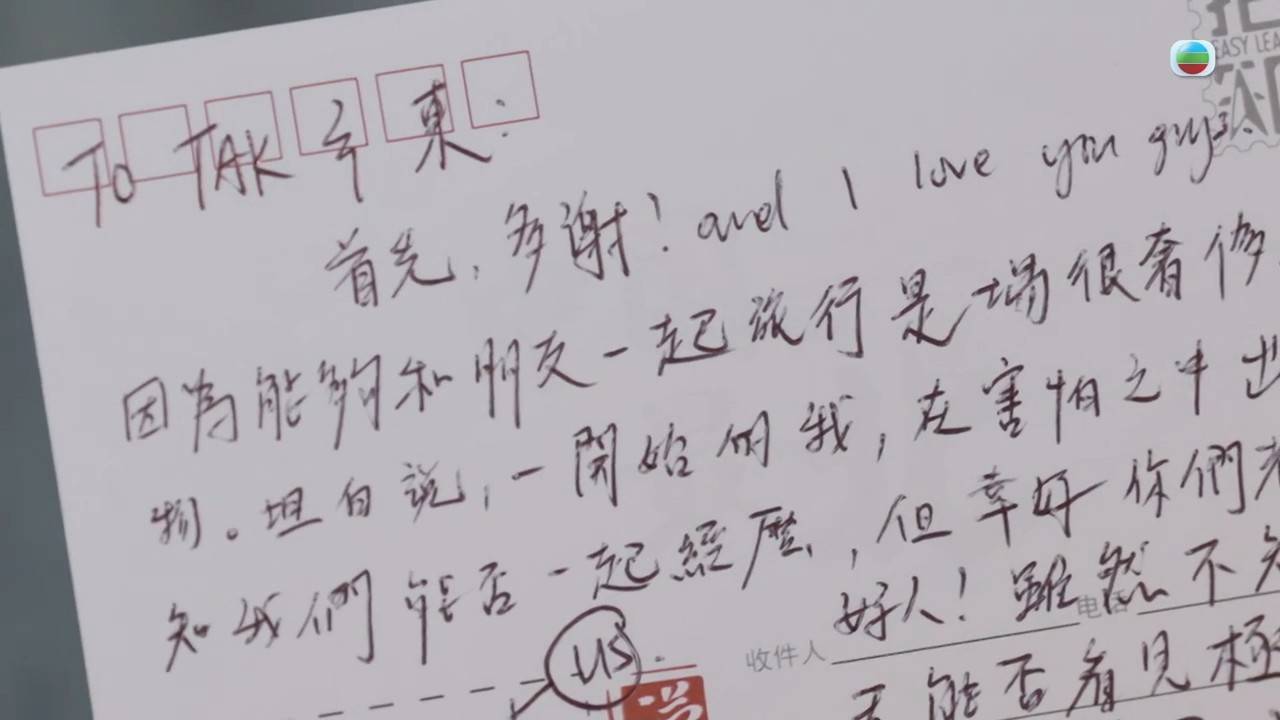 To TAK 亨 東:
首先, 多謝! and I love you guys.
因為能夠和朋友一起旅行是場很奢侈
物。坦白說, 一開始的我, 在害怕之中出
知我們能否一起經歷, 但幸好你們
好人! 雖然不知
US.
收件人
电话
能否看見極
EASY LEA